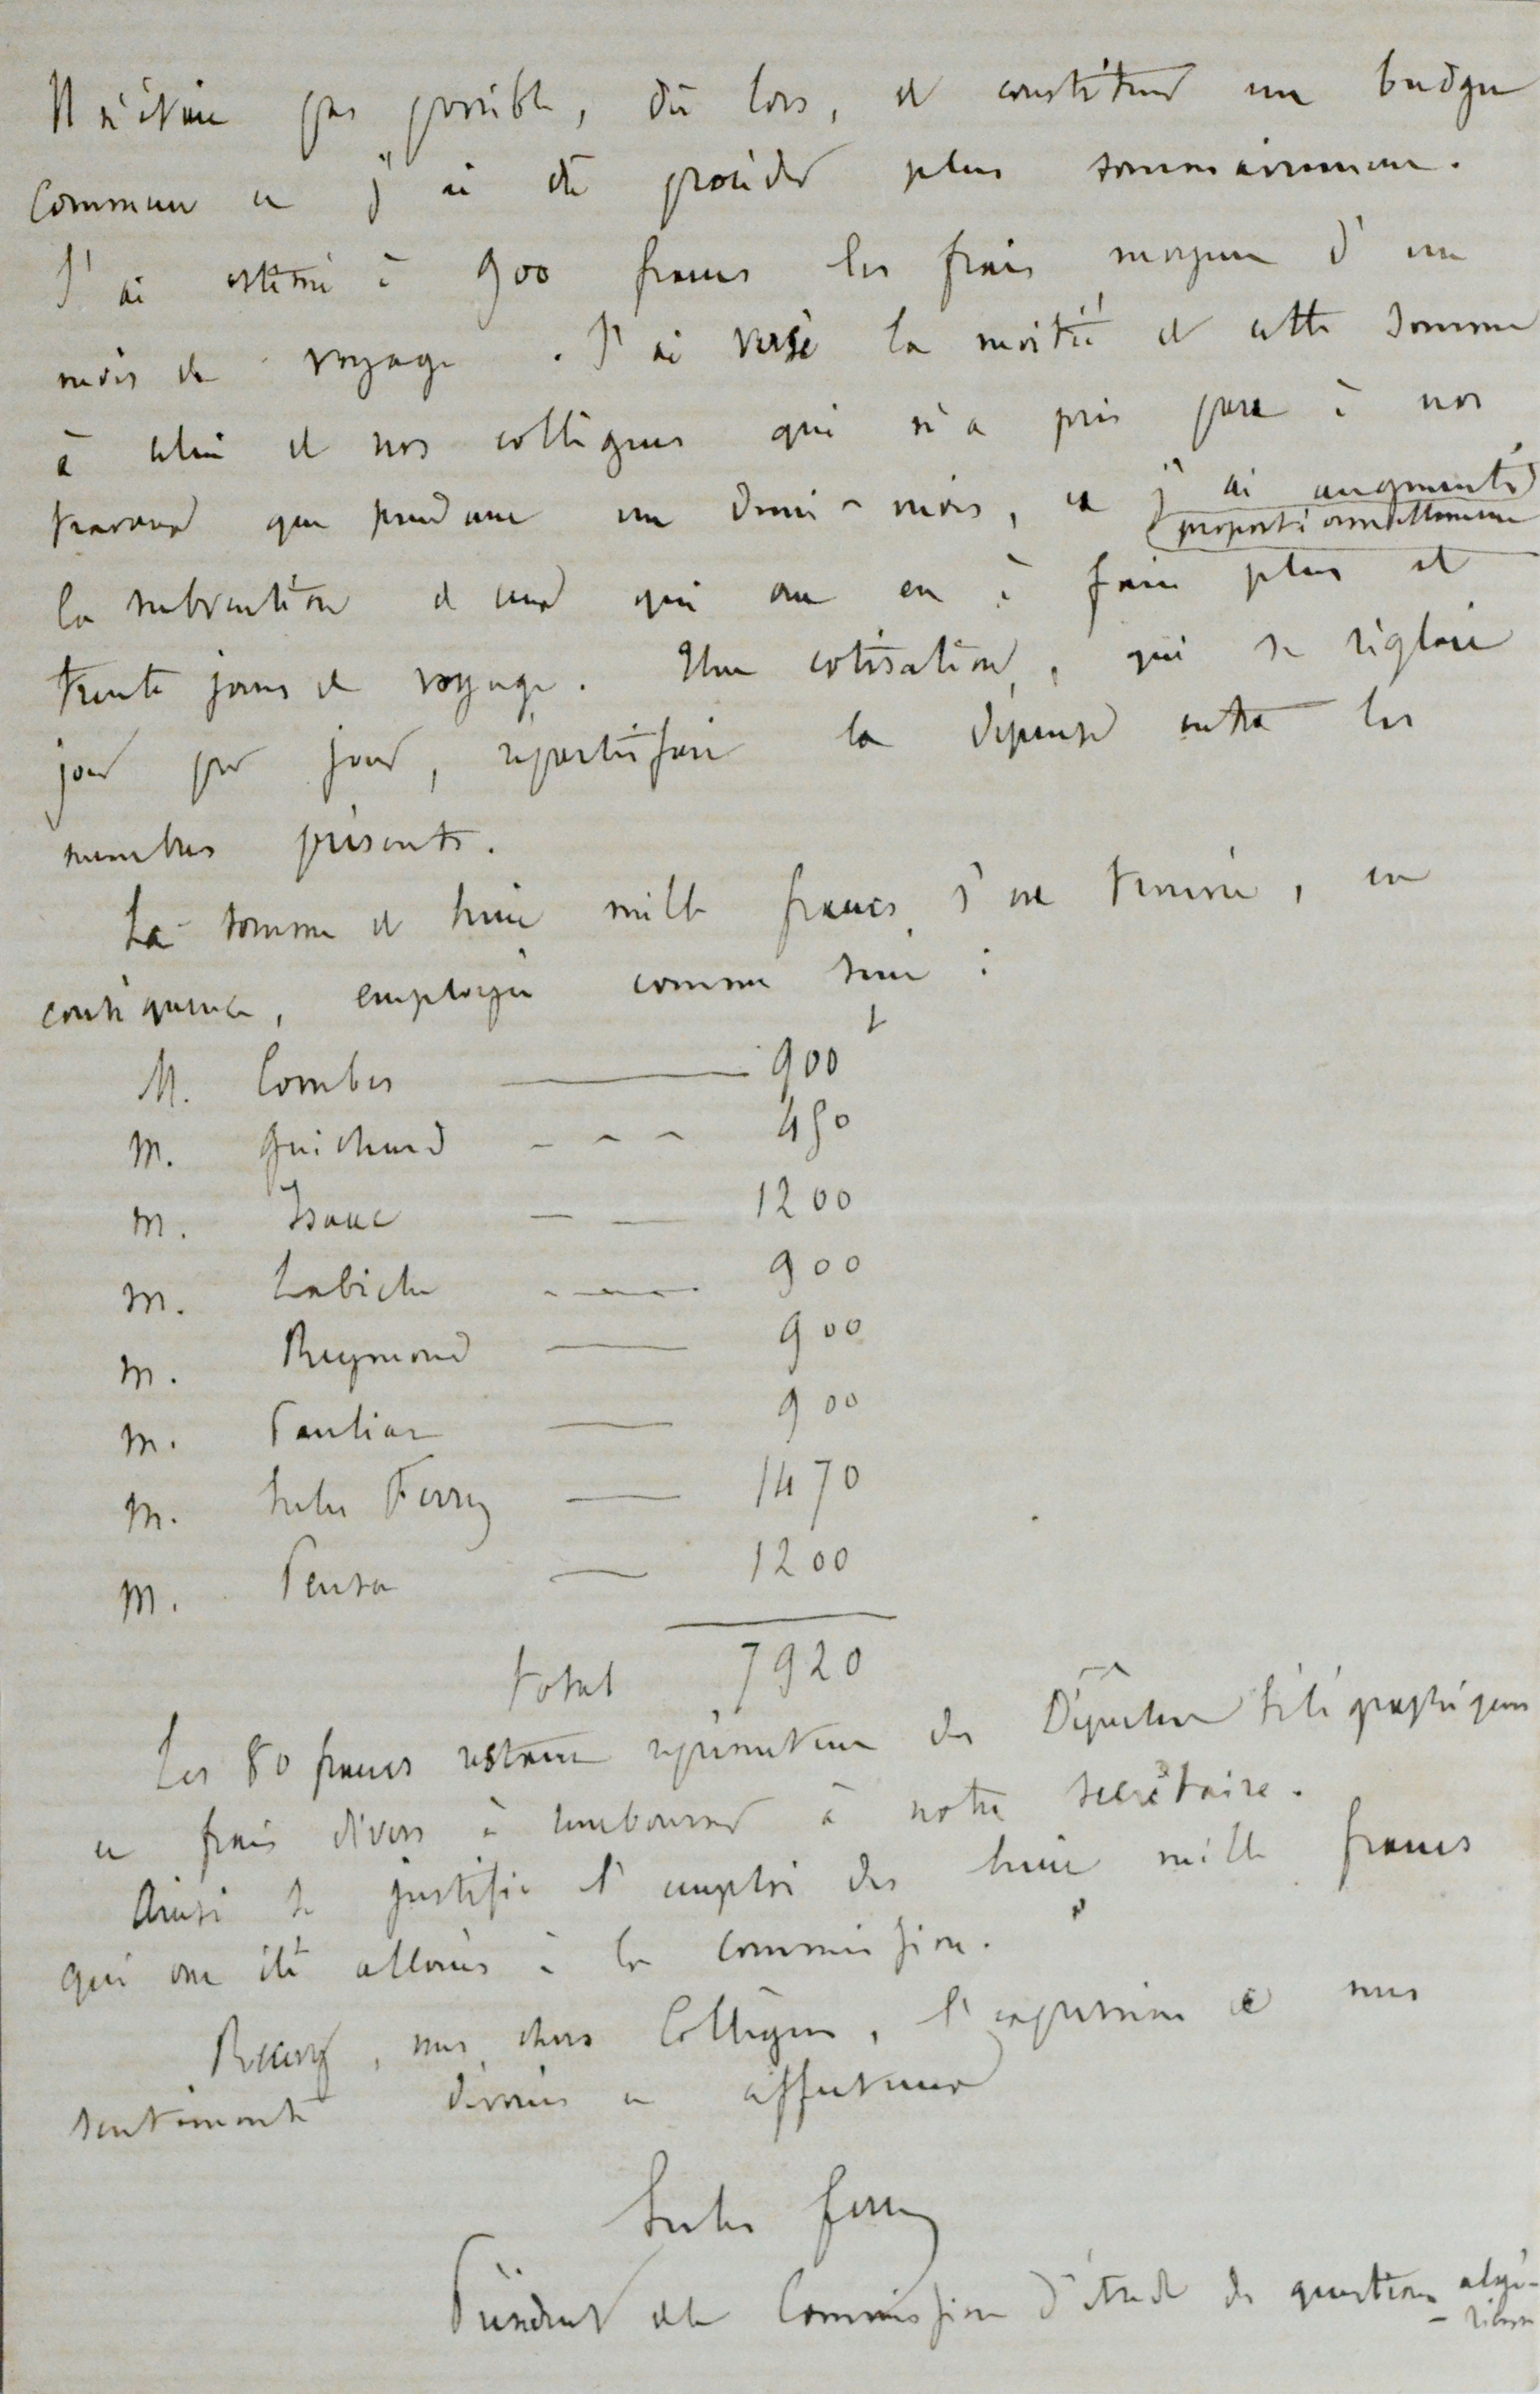 Il n'était pas possible, dès lors, de constituer un budget
commun et j'ai dû procéder plus sommairement.
J'ai estimé à 900 francs les frais moyens d'un
mois de voyage. J'ai versé la moitié de cette somme
à celui de nos collègues qui n'a pris part à nos
travaux que pendant un demi-mois, et j'ai augmenté
proportionnellement
la subvention de ceux qui ont eu à faire plus de
trente jours de voyage. Une cotisation, qui se réglait
jour par jour, répartissait la dépense entre les
membres présents.
La somme de huit mille francs s'est trouvée, en
conséquence, employée comme suit :
M. Combes — 900 f
M. Guichard - - - 450
M. Isaac — — 1200
M. Labiche - - - 900
M. Reymond — 900
M. Pauliat — 900
M. Jules Ferry — 1470
M. Pensa — 1200
Total 7920
Les 80 francs restant représentent des Dépêches télégraphiques
et frais divers à rembourser à notre secrétaire.
Ainsi se justifie l'emploi des huit mille francs
qui ont été alloués à la commission.
Recevez, mes chers Collègues, l'expression de mes
sentiments dévoués et affectueux
Jules Ferry
Président de la Commission d'étude des questions algé-
-riennes